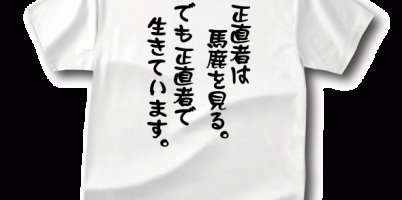 正直者は
馬鹿を見る。
でも正直者で
生きています。